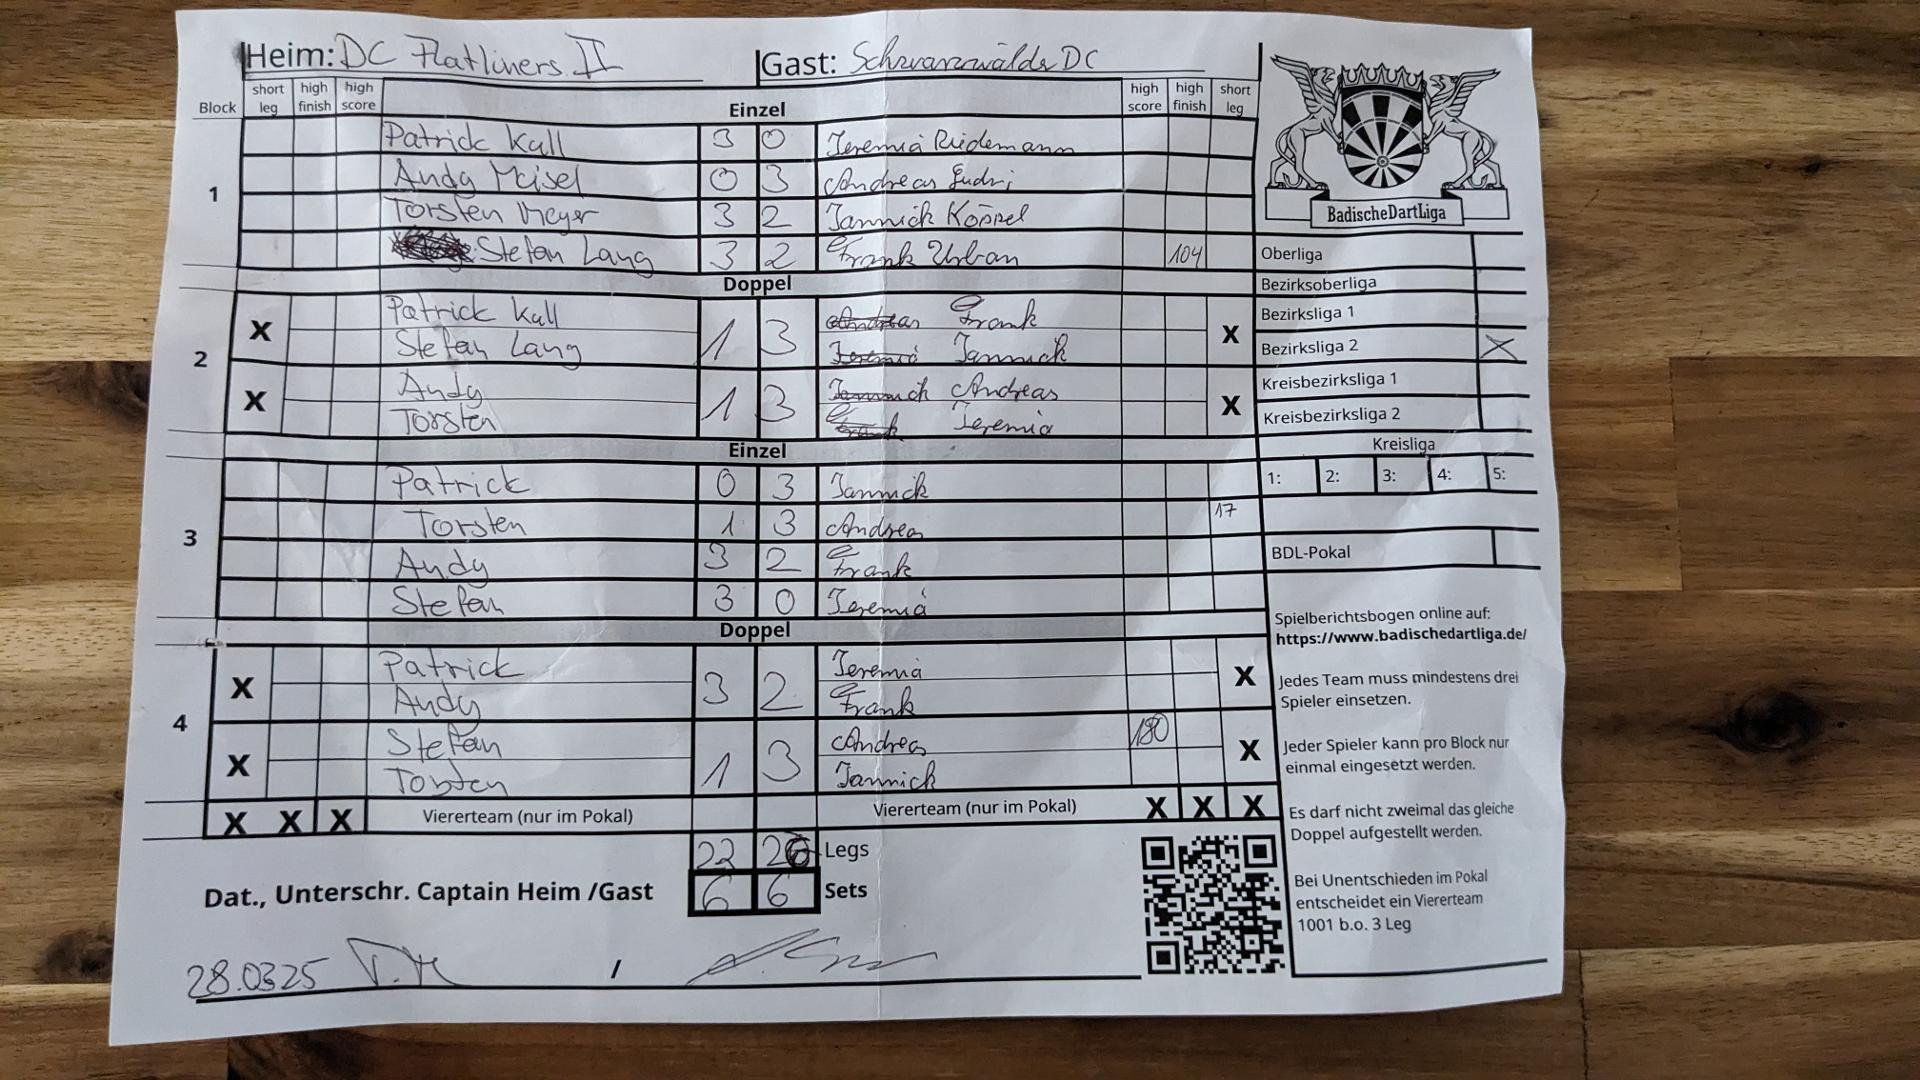 Heim: DC Flatliners II Gast: Schwarzwälder DC
Block short leg high finish high score Einzel high score high finish short leg
1
Patrick Kull 3 0 Jeremia Riedemann
Andy Meisel 0 3 Andreas
Torsten Meyer 3 2 Jannick Köppel
Stefan Lang 3 2 Frank Urban 104
Doppel
2
X Patrick Kull 1 3 Andreas Frank X
Stefan Lang Jeremia Jannick
X Andy 1 3 Jannick Andreas X
Torsten Frank Jeremia
Einzel
3
Patrick 0 3 Jannick
Torsten 1 3 Andreas 17
Andy 3 2 Frank
Stefan 3 0 Jeremia
Doppel
4
X Patrick 3 2 Jeremia X
Andy Frank
X Stefan 1 3 Andreas 180 X
Torsten Jannick
X X X Viererteam (nur im Pokal) Viererteam (nur im Pokal) X X X
22 26 Legs
Dat., Unterschr. Captain Heim /Gast 6 6 Sets
28.03.25 /
BadischeDartLiga
Oberliga
Bezirksoberliga
Bezirksliga 1
Bezirksliga 2 X
Kreisbezirksliga 1
Kreisbezirksliga 2
Kreisliga
1: 2: 3: 4: 5:
BDL-Pokal
Spielberichtsbogen online auf:
https://www.badischedartliga.de/
Jedes Team muss mindestens drei
Spieler einsetzen.
Jeder Spieler kann pro Block nur
einmal eingesetzt werden.
Es darf nicht zweimal das gleiche
Doppel aufgestellt werden.
Bei Unentschieden im Pokal
entscheidet ein Viererteam
1001 b.o. 3 Leg